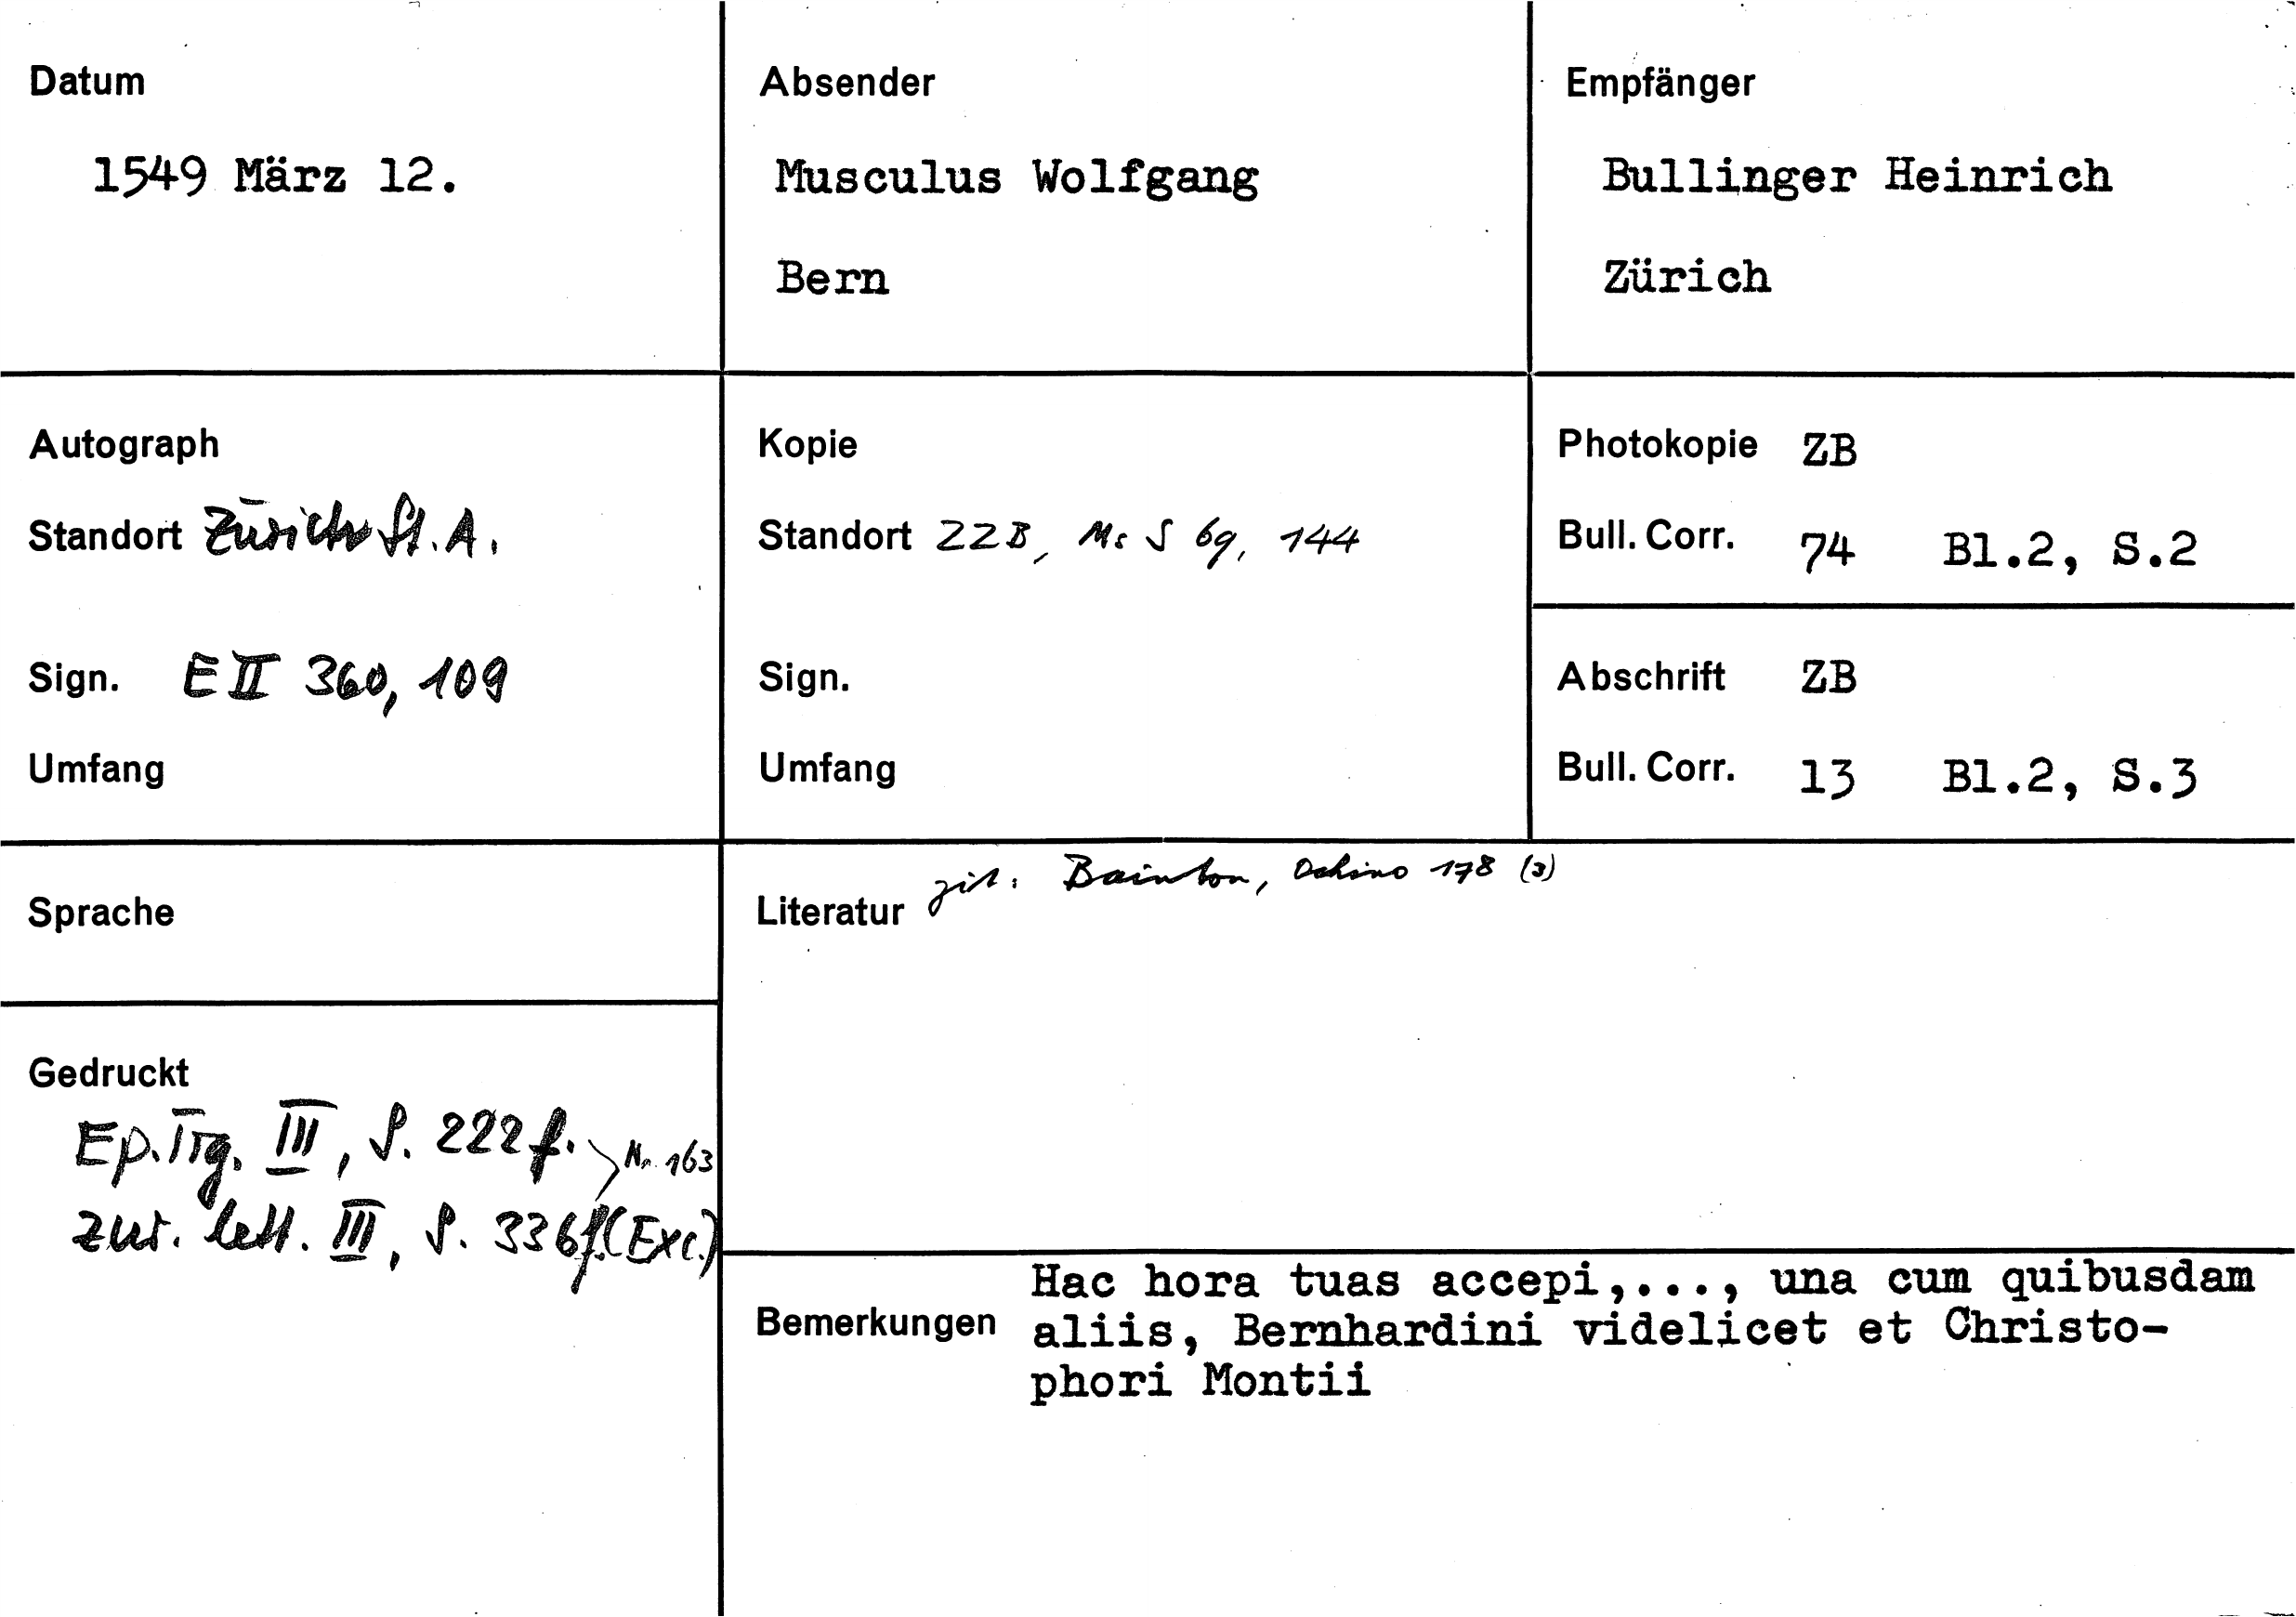 Datum
1549 März 12.
Absender
Musculus Wolfgang
Bern
Empfänger
Bullinger Heinrich
Zürich
Autograph
Standort Zürich St. A.
Sign. E II 360, 109
Umfang
Kopie
Standort ZZB, Ms S 69, 144
Sign.
Umfang
Photokopie ZB
Bull. Corr. 74 Bl.2, S.2
Abschrift ZB
Bull. Corr. 13 Bl.2, S.3
Sprache
Literatur zit. Bainton, Ochino 178 (3)
Gedruckt
Ep. Tig. III, S. 222 f. Nr. 163
Zur. lett. III, S. 336 f. (Exc.)
Bemerkungen
Hac hora tuas accepi,..., una cum quibusdam
aliis, Bernhardini videlicet et Christo-
phori Montii